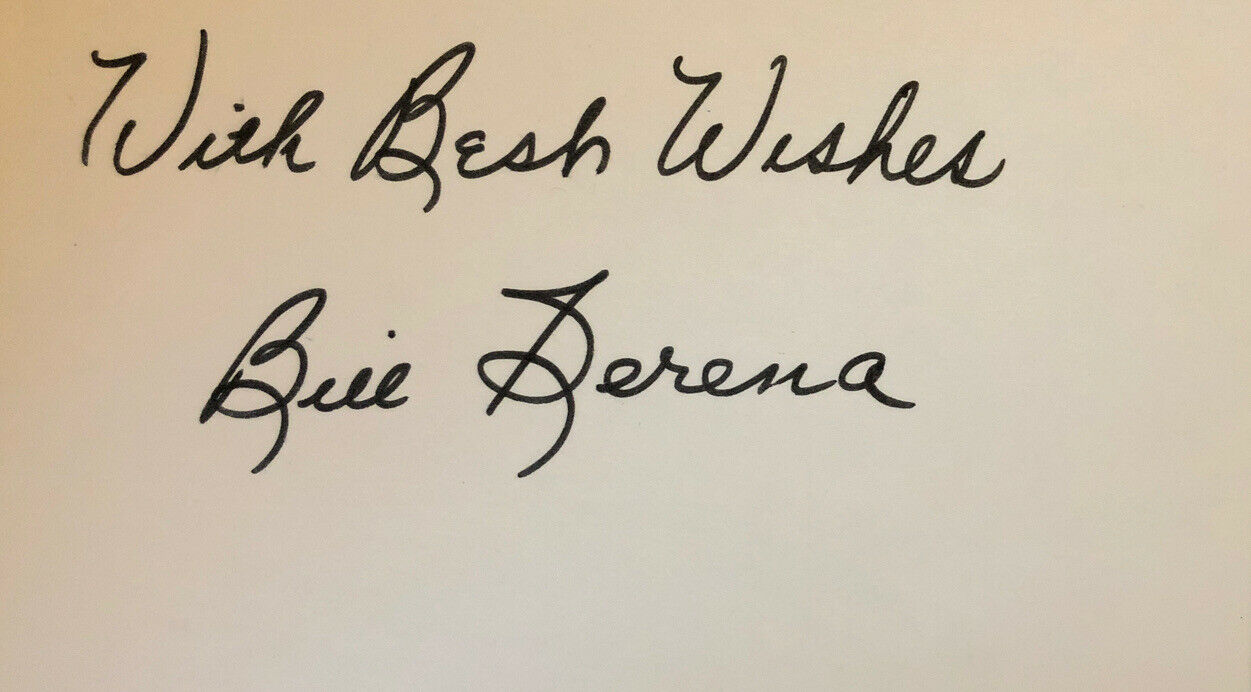 With Best Wishes
Bill Serena